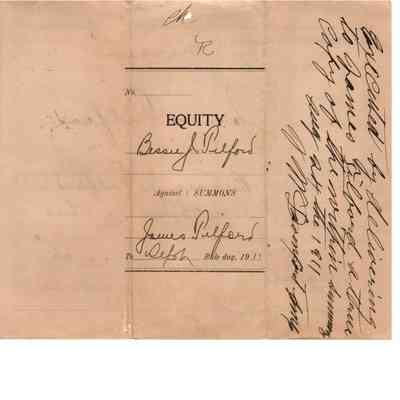 R
No.
EQUITY
Bessie J. Pilford
Against : SUMMONS
James Pilford
To Sept. Rule day, 191
Executed by delivering
to James Pilford a true
Copy of the within summons
Aug 24 de 1911